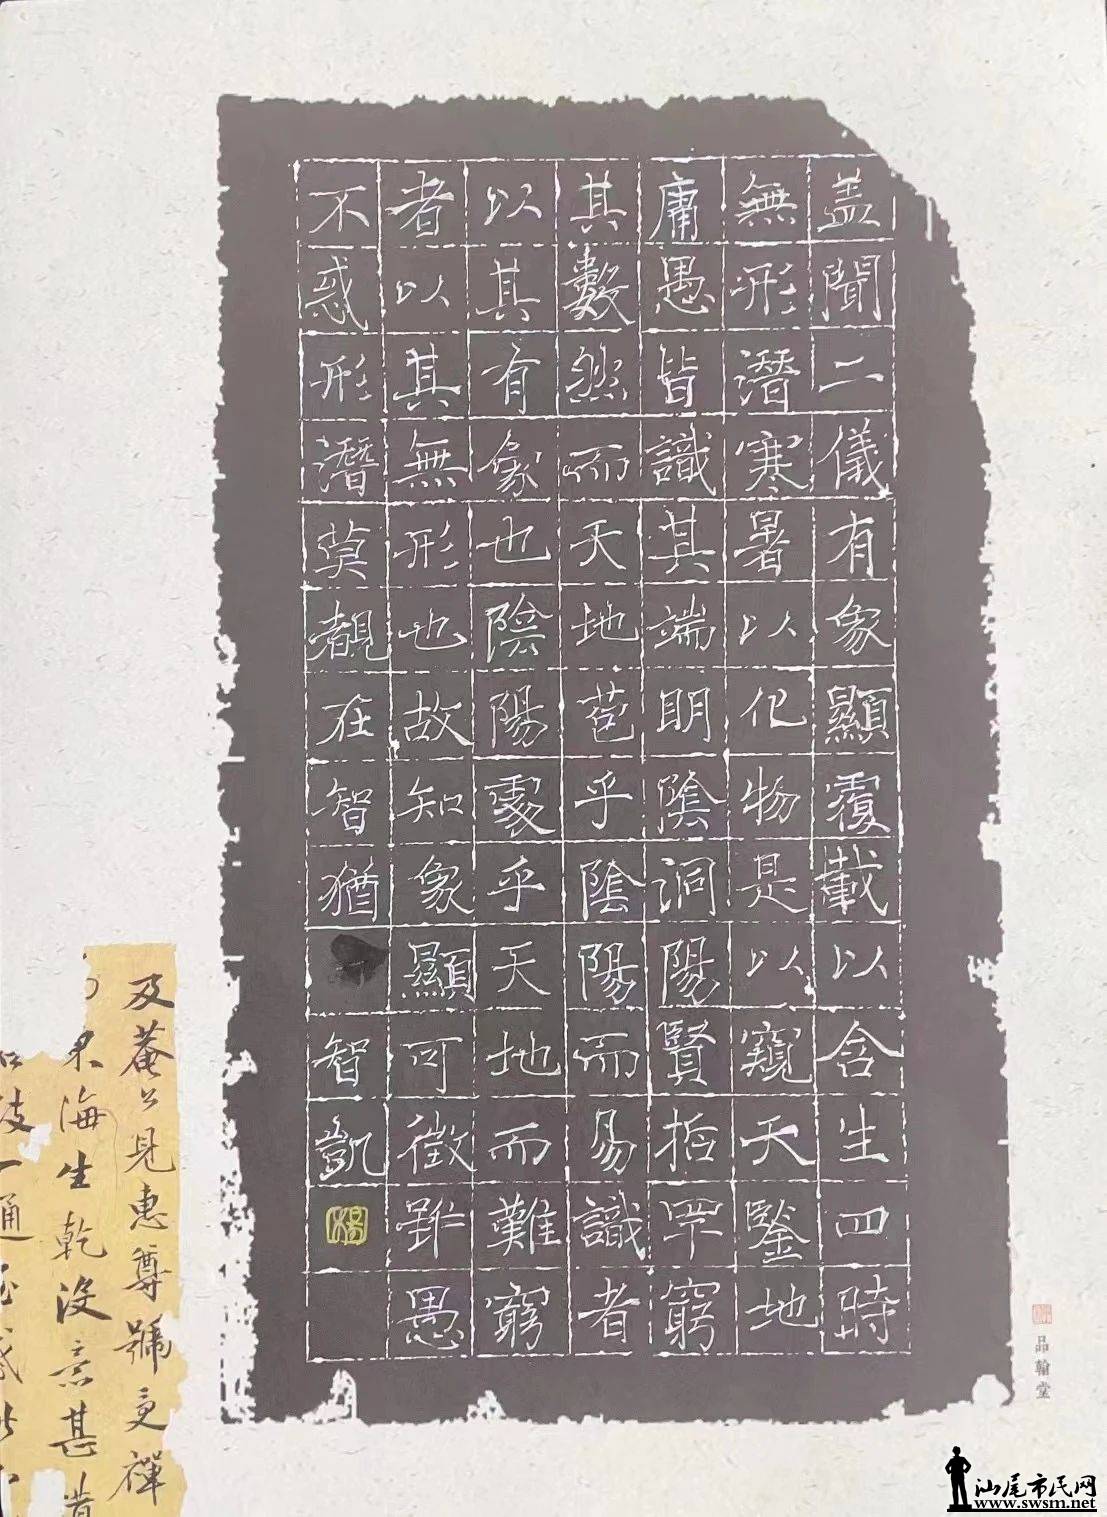 盖聞二儀有象顯覆載以含生四時
無形潛寒暑以化物是以窺天鑒地
庸愚皆識其端明陰洞陽賢哲罕窮
其數然而天地苞乎陰陽而易識者
以其有象也陰陽處乎天地而難窮
者以其無形也故知象顯可徵雖愚
不惑形潛莫覩在智猶
智凱
楊
品翰堂
及菴公見惠尊號
海生乾没
通
汕尾市民网
www.swsm.net